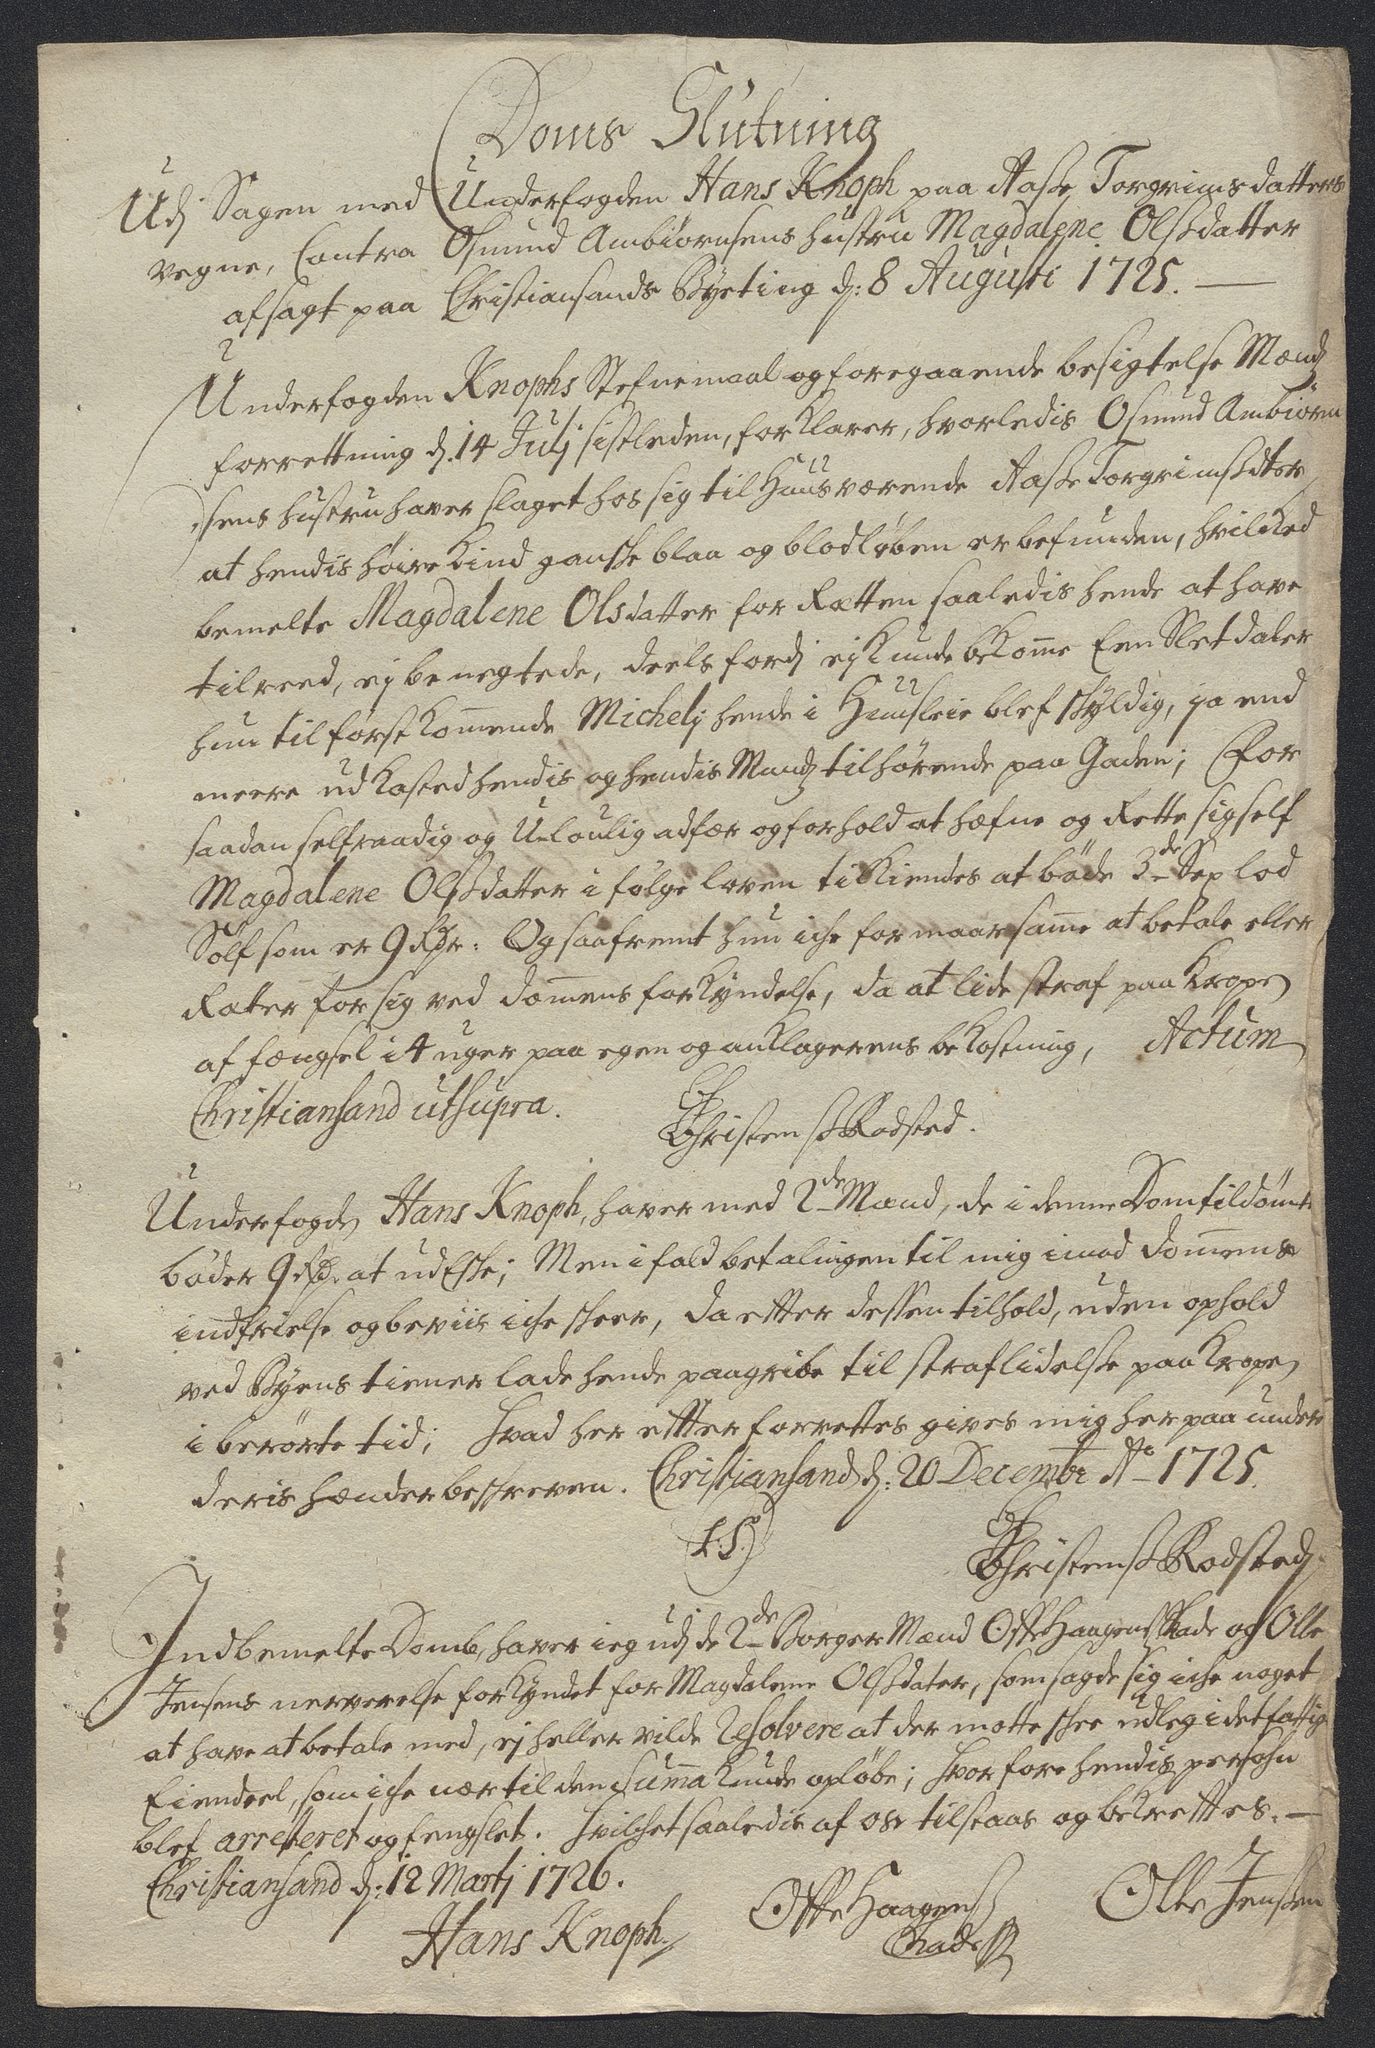 Doms Slutning
Udj Sagen med Underfogden Hans Knoph paa Aasße Torgrimsdatters
vegne, Contra Osmund Ambiörnsens hustru Magdalene Olsdatter
afsagt paa Christiansands Byeting dj: 8 Augusti 1725. —
Underfogden Knophs Stefnemaal og foregaaende besigtelse Mændz
forrettning dj. 14 Julj sistleden, forklarer, hvorledis Osmund Ambiörn
sens hustru haver slaget hos sig til Huus værende Aasße Torgrimsdter
at hendis höire Kind gansche blaa og blodløben er befunden, hvilcked
bemelte Magdalene Olsdatter for Retten saaledis hende at have
tilreed, ej benegtede, deels fordj ej kunde bekom̄e Een Sletdaler
hun til förstkom̄ende Michelj hende i Huusleie blef schyldig, ja end
meere udkasted hendis og hendis Mandz tilhørende paa Gaden; For
saadan selfraadig og Uloulig adfær og forhold at hæfne og Rette sig self
Magdalene Olsdatter i følge loven tilkiendes at bøde 3de Sex lod
Sölf som er 9 Rdr. Og saafremt hun iche formaar sam̄e at betale eller
Retter for sig ved Dom̄ens forkyndelse, da at lide straf paa Kropen
af fængsel i 4 uger paa egen og anklagerens bekostning, Actum
Christiansand ut supra.
Christen Rodsted.
Underfogden Hans Knoph, haver med 2de Mænd, de i denne Dom tildömte
böder 9 Rdr at udEsche; Men i fald betalingen til mig imod Dom̄ens
indfrielse og beviis iche scheer, da efter dessen tilhold, uden ophold
ved Byens tiener lade hende paagribe til straf lidelse paa Kropen
i berörte tid; hvad her etter forrettes gives mig her paa under
deris hænder beschreven. Christiansand dj: 20 Decembr Ao 1725.
(L.S.)
Christen Rodsted
Indbemelte Domb, haver ieg udj de 2de Borger Mænd Offe Haagens Rade og Olle
Jensens nerverelse forkyndet for Magdalene Olsdater, som sagde sig iche noget
at have at betale med, ej heller vilde Resolvere at der motte schee udleg i det fattig
Eiendeel, som iche nær til den Sum̄a kunde opløbe; hvorfore hendis persohn
blef arresteret og fengslet. hvilchet saaledis af os tilstaas og bekrefttes. —
Christiansand dj: 12 Martj 1726.
Hans Knoph.
Offe Haagens
Rade
Olle Jensen